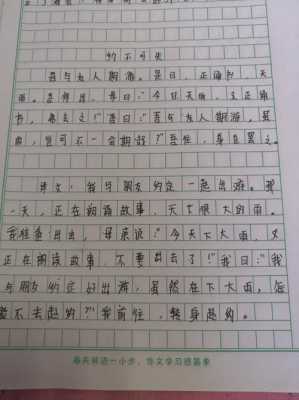 约不可失
吾与友人期游。是日,正诵书,天
雨。吾将出,母曰:“今日天雨,又正诵
书,弗去之。”吾曰:“吾与友人期游,虽
雨,岂可不一会期哉?”吾往,身自罢之。
译文:我与朋友约定一起出游。那
一天,正在朗读故事,天下很大的雨。
我准备出去,母亲说:“今天下大雨,又
正在朗读故事,不要出去了!”我曰:“我
与朋友约定好出游,虽然在下大雨,怎
能不去赴约?”我前往,转身赴约。
每天前进一小步,作文学习想篇章